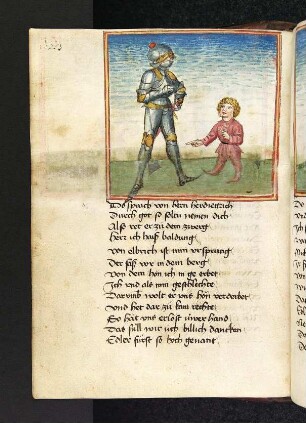 Do sprach von bern her dietrich
Durch got so soltu nemen dich
Also ret er zu dem zwerg
Herr ich haiß baldung
von elbrich ist min ursprung
Der saß vor in dem berg
Von dem hon ich in ge erbet
Ich und als min geschlächte
Darumb wolt er uns hon verderbet
Und het dar zu kain rechte
So hat uns erlost üwer hand
Das süll wir üch billich dancken
Edler fürst so hoch genant